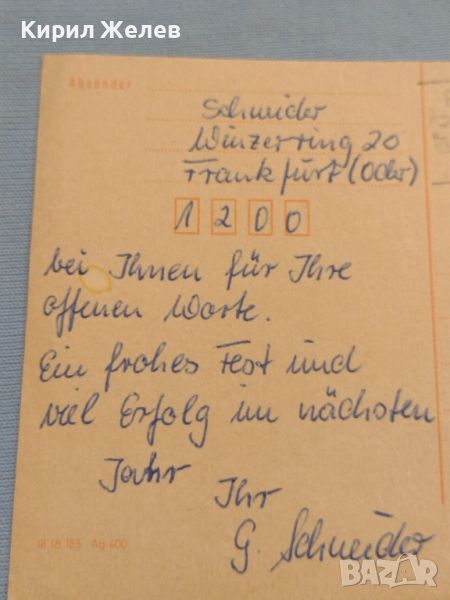 Кирил Желев
Absender
Schneider
Winzerring 20
Frankfurt (Oder)
1200
bei Ihnen für Ihre
offenen Worte.
Ein frohes Fest und
viel Erfolg im nächsten
Jahr
Ihr
G. Schneider
III 18 185 Ag 400
bazar